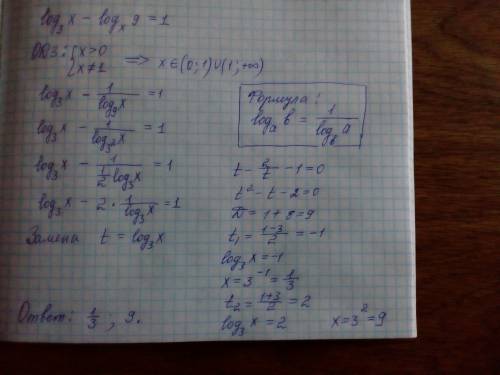 log₃x - logₓ9 = 1
ОДЗ: {x>0
{x≠1 => x∈(0;1)∪(1;+∞)
log₃x - 1/log₉x = 1
log₃x - 1/log₃²x = 1
log₃x - 1/(1/2 log₃x) = 1
log₃x - 2 · 1/log₃x = 1
Замена t = log₃x
Формула:
logₐb = 1/log_b a
t - 2/t - 1 = 0
t² - t - 2 = 0
D = 1 + 8 = 9
t₁ = (1-3)/2 = -1
log₃x = -1
x = 3⁻¹ = 1/3
t₂ = (1+3)/2 = 2
log₃x = 2 x = 3² = 9
Ответ: 1/3 ; 9.